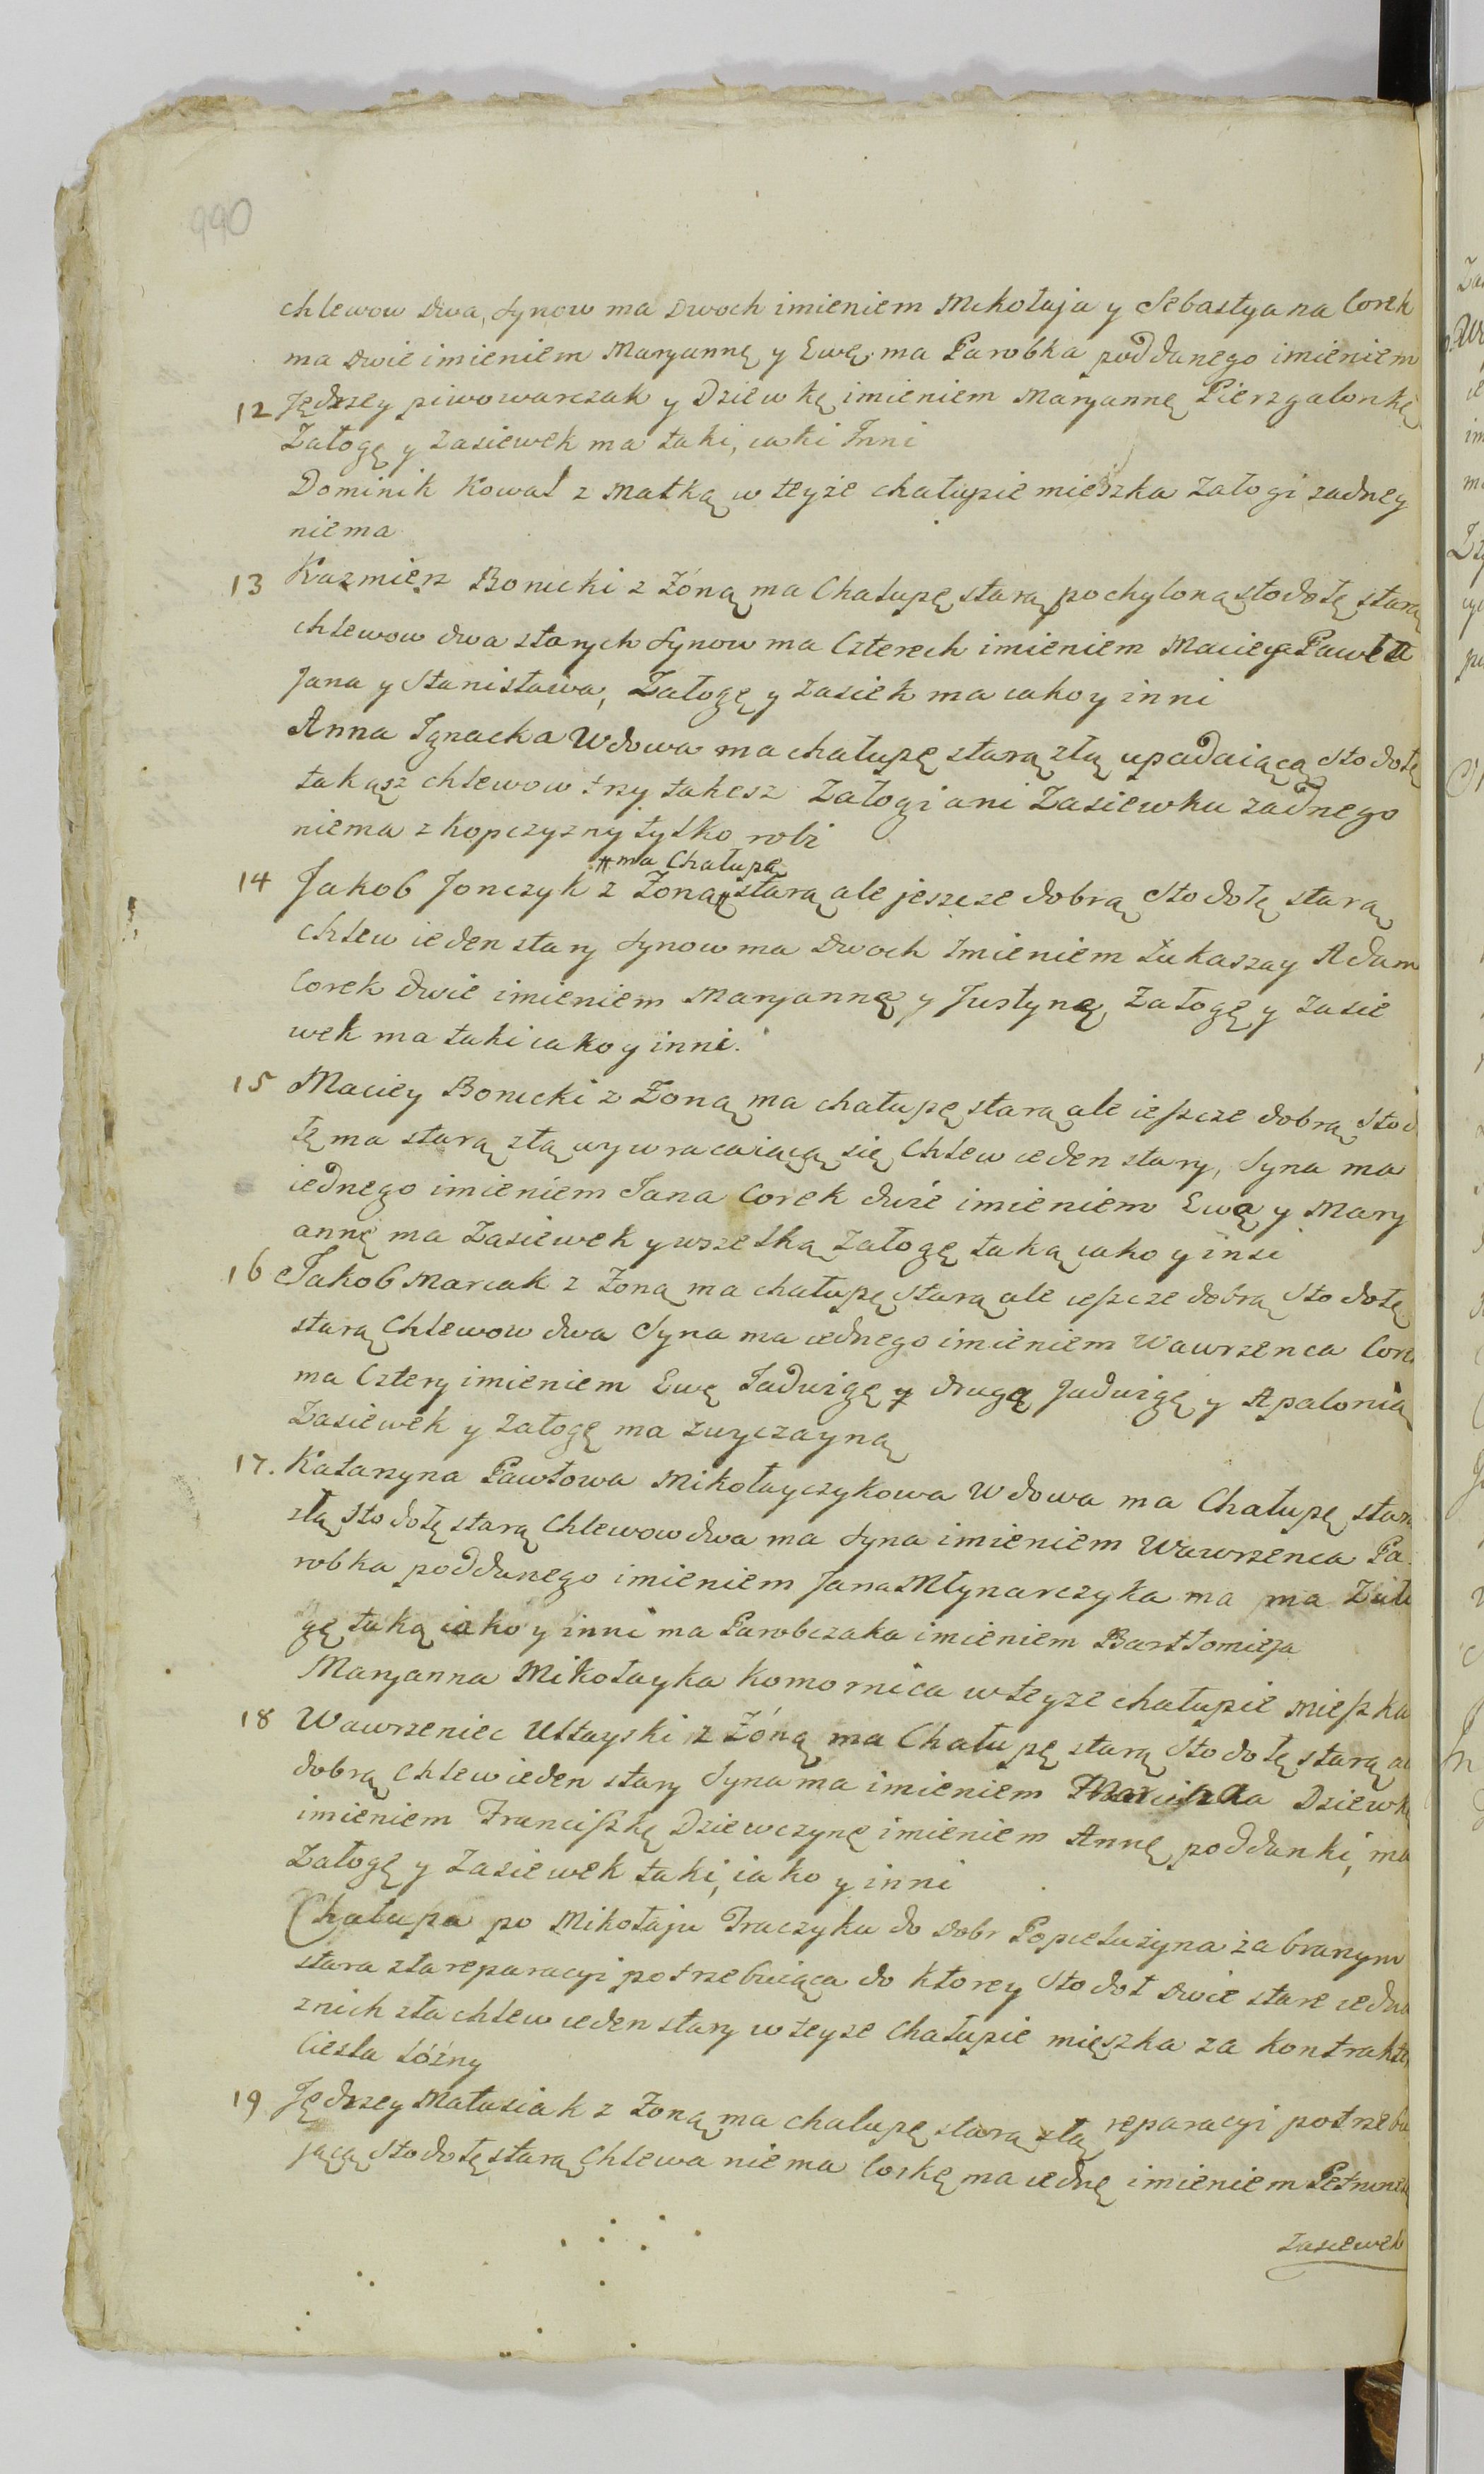 990
chlewow dwa, Synow ma Dwoch imieniem Mikołaja y Sebastyana Corek
ma dwie imieniem Maryannę y Ewę. ma Parobka poddanego imieniem
12 Jędrzey piwowarczak y Dziewkę imieniem Maryannę Pierzgalonkę
Załogę y zasiewek ma taki, iaki Inni
Dominik Kowal z Matką w teyże chałupie mieszka Załogi zadney
niema
13 Kazmierz Bonicki z Żóną ma Chałupę starą pochyloną stodołę starą
chlewow dwa starych Synow ma Czterech imieniem Macieja Pawła
Jana y Stanisława, Załogę y zasiek ma iako y inni
Anna Ignacka Wdowa ma chałupę starą złą upadaiącą Stodołę
takąsz chlewow trzy takesz Załogi ani Zasiewku zadnego
niema z kopczyzny tylko robi
# ma Chałupę
14 Jakob Jonczyk z Żoną # starą ale jeszcze dobrą Stodołę starą
chlew ieden stary Synow ma Dwoch Imieniem Łukasza y Adam
Corek dwie imieniem Maryannę y Justynę, Załogę y zasie
wek ma taki iako y inni.
15 Maciey Bonicki z Żoną ma chałupę starą ale ieszcze dobrą Stod
łę ma starą złą wywracaiącą się Chlew ieden stary, Syna ma
iednego imieniem Jana Corek dwie imieniem Ewą y Mary
annę ma Zasiewek y wszelką Załogę taką iako y insi
16 Jakob Marcak z Żoną ma chałupę starą ale ieszcze dobrą Stodołę
starą Chlewow dwa Syna ma iednego imieniem Wawrzenca Core
ma Cztery imieniem Ewę Jadwigę y drugą Jadwigę y Apalonią
Zasiewek y Załogę ma zwyczayną
17. Katarzyna Pawłowa Mikołayczykowa Wdowa ma Chałupę star
złą Stodołę starą Chlewow dwa ma Syna imieniem Wawrzenca Pa
robka poddanego imieniem Jana Młynarczyka ma ma Zało
gę taką iako y inni ma Parobczaka imieniem Bartłomieja
Maryanna Mikołayka Komornica w teyze chałupie mieszka
18 Wawrzeniec Ustayski z Żóną ma Chałupę starą Stodołę starą al
dobrą Chlew ieden stary Syna ma imieniem Dziewkę
imieniem Franciszkę Dziewczynę imieniem Annę poddanki, ma
Załogę y Zasiewek taki, iako y inni
Chałupa po Mikołaju Traczyku do Dobr Popielużyna zabranym
stara zła reparacyi potrzebuiąca do ktorey Stodoł dwie stare iedna
znich zła chlew ieden stary w teyze Chałupie mieszka za kontrakte
Ciesla Łóźny
19 Jędrzey Matusiak z Żoną ma chalupę starą złą reparacyi potrzebu
jącą Stodołę starą Chlewa niema Corkę ma iednę imieniem Petrunelę
Zasiewek